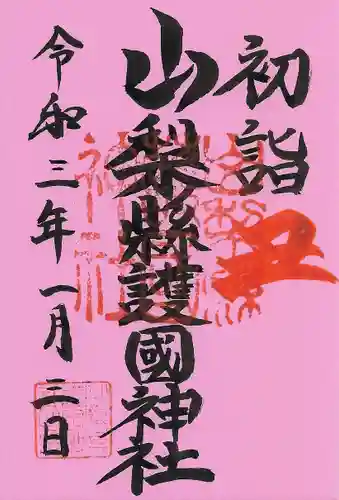 初詣
丑
山梨縣護國神社
令和三年一月三日